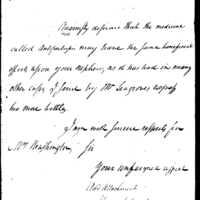 Anxiously desirous that the medicine
called Antiseptic may have the same beneficial
effects upon your nephew, as it has had in many
other cases, I send by Mr Seagroves
two more bottles,
I am with sincere respects for
Mrs Washington Sir
Your unfeigned respect
And Attachment